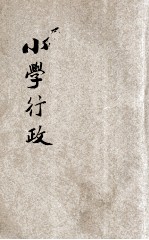 小學行政